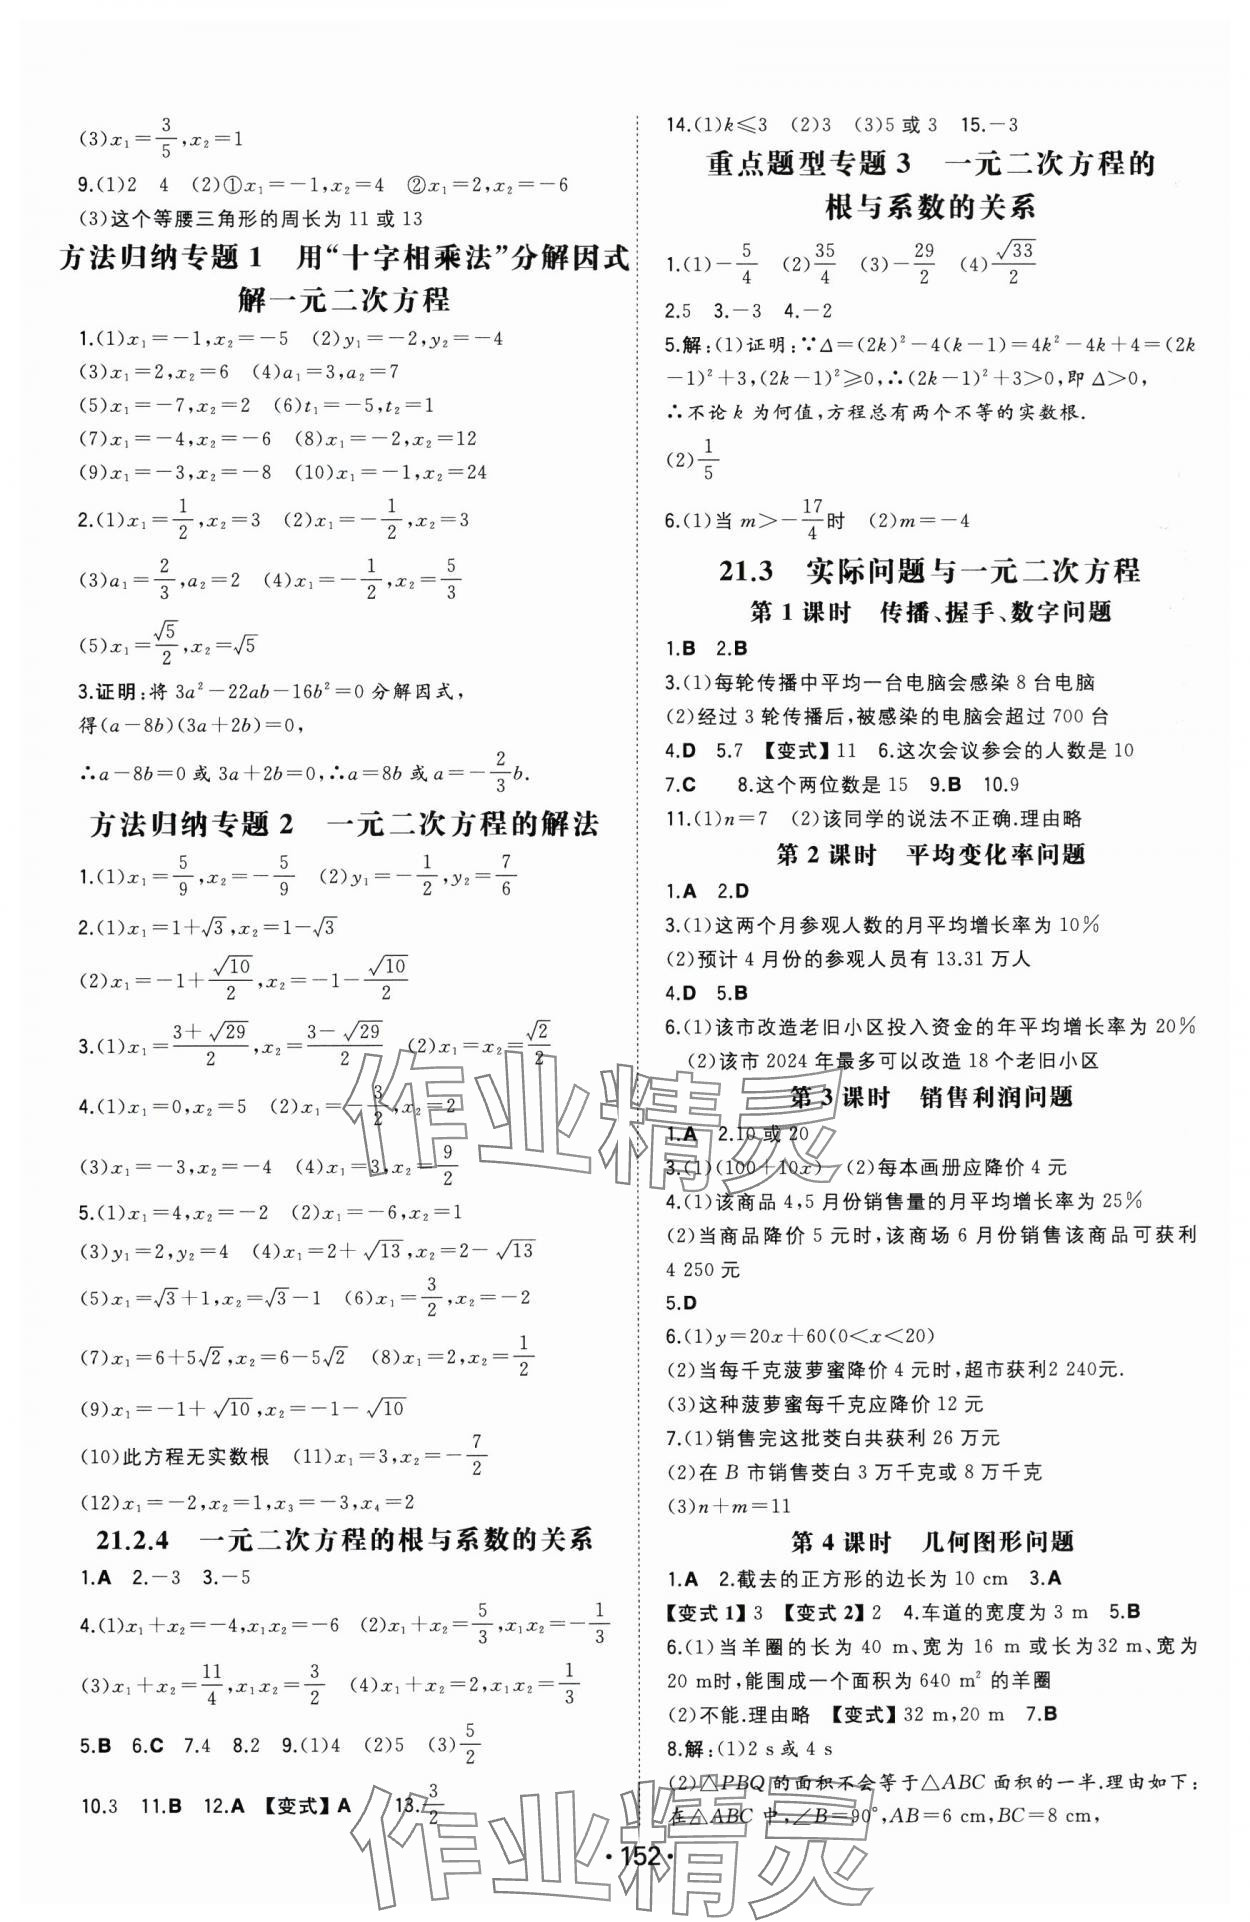 (3)x₁=3/5,x₂=1
9.(1)2 4 (2)①x₁=-1,x₂=4 ②x₁=2,x₂=-6
(3)这个等腰三角形的周长为11或13
方法归纳专题1 用“十字相乘法”分解因式
解一元二次方程
1.(1)x₁=-1,x₂=-5 (2)y₁=-2,y₂=-4
(3)x₁=2,x₂=6 (4)a₁=3,a₂=7
(5)x₁=-7,x₂=2 (6)t₁=-5,t₂=1
(7)x₁=-4,x₂=-6 (8)x₁=-2,x₂=12
(9)x₁=-3,x₂=-8 (10)x₁=-1,x₂=24
2.(1)x₁=1/2,x₂=3 (2)x₁=-1/2,x₂=3
(3)a₁=2/3,a₂=2 (4)x₁=-1/2,x₂=5/3
(5)x₁=√5/2,x₂=√5
3.证明:将3a²-22ab-16b²=0分解因式,
得(a-8b)(3a+2b)=0,
∴a-8b=0或3a+2b=0,∴a=8b或a=-2/3b.
方法归纳专题2 一元二次方程的解法
1.(1)x₁=5/9,x₂=-5/9 (2)y₁=-1/2,y₂=7/6
2.(1)x₁=1+√3,x₂=1-√3
(2)x₁=-1+√10/2,x₂=-1-√10/2
3.(1)x₁=(3+√29)/2,x₂=(3-√29)/2 (2)x₁=x₂=√2/2
4.(1)x₁=0,x₂=5 (2)x₁=-3/2,x₂=2
(3)x₁=-3,x₂=-4 (4)x₁=3,x₂=9/2
5.(1)x₁=4,x₂=-2 (2)x₁=-6,x₂=1
(3)y₁=2,y₂=4 (4)x₁=2+√13,x₂=2-√13
(5)x₁=√3+1,x₂=√3-1 (6)x₁=3/2,x₂=-2
(7)x₁=6+5√2,x₂=6-5√2 (8)x₁=2,x₂=1/2
(9)x₁=-1+√10,x₂=-1-√10
(10)此方程无实数根 (11)x₁=3,x₂=-7/2
(12)x₁=-2,x₂=1,x₃=-3,x₄=2
21.2.4 一元二次方程的根与系数的关系
1.A 2.-3 3.-5
4.(1)x₁+x₂=-4,x₁x₂=-6 (2)x₁+x₂=5/3,x₁x₂=-1/3
(3)x₁+x₂=11/4,x₁x₂=3/2 (4)x₁+x₂=2,x₁x₂=1/3
5.B 6.C 7.4 8.2 9.(1)4 (2)5 (3)5/2
10.3 11.B 12.A 【变式】A 13.3/2
14.(1)k⩽3 (2)3 (3)5或3 15.-3
重点题型专题3 一元二次方程的
根与系数的关系
1.(1)-5/4 (2)35/4 (3)-29/2 (4)√33/2
2.5 3.-3 4.-2
5.解:(1)证明:∵Δ=(2k)²-4(k-1)=4k²-4k+4=(2k
-1)²+3,(2k-1)²⩾0,∴(2k-1)²+3>0,即Δ>0,
∴不论k为何值,方程总有两个不等的实数根.
(2)1/5
6.(1)当m>-17/4时 (2)m=-4
21.3 实际问题与一元二次方程
第1课时 传播、握手、数字问题
1.B 2.B
3.(1)每轮传播中平均一台电脑会感染8台电脑
(2)经过3轮传播后,被感染的电脑会超过700台
4.D 5.7 【变式】11 6.这次会议参会的人数是10
7.C 8.这个两位数是15 9.B 10.9
11.(1)n=7 (2)该同学的说法不正确.理由略
第2课时 平均变化率问题
1.A 2.D
3.(1)这两个月参观人数的月平均增长率为10%
(2)预计4月份的参观人员有13.31万人
4.D 5.B
6.(1)该市改造老旧小区投入资金的年平均增长率为20%
(2)该市2024年最多可以改造18个老旧小区
第3课时 销售利润问题
1.A 2.10或20
3.(1)(100+10x) (2)每本画册应降价4元
4.(1)该商品4,5月份销售量的月平均增长率为25%
(2)当商品降价5元时,该商场6月份销售该商品可获利
4 250元
5.D
6.(1)y=20x+60(0<x<20)
(2)当每千克菠萝蜜降价4元时,超市获利2 240元.
(3)这种菠萝蜜每千克应降价12元
7.(1)销售完这批茭白共获利26万元
(2)在B市销售茭白3万千克或8万千克
(3)n+m=11
第4课时 几何图形问题
1.A 2.截去的正方形的边长为10 cm 3.A
【变式1】3 【变式2】2 4.车道的宽度为3 m 5.B
6.(1)当羊圈的长为40 m、宽为16 m或长为32 m、宽为
20 m时,能围成一个面积为640 m²的羊圈
(2)不能.理由略 【变式】32 m,20 m 7.B
8.解:(1)2 s或4 s
(2)△PBQ的面积不会等于△ABC面积的一半.理由如下:
在△ABC中,∠B=90°,AB=6 cm,BC=8 cm,
·152·
作业精灵
作业精灵